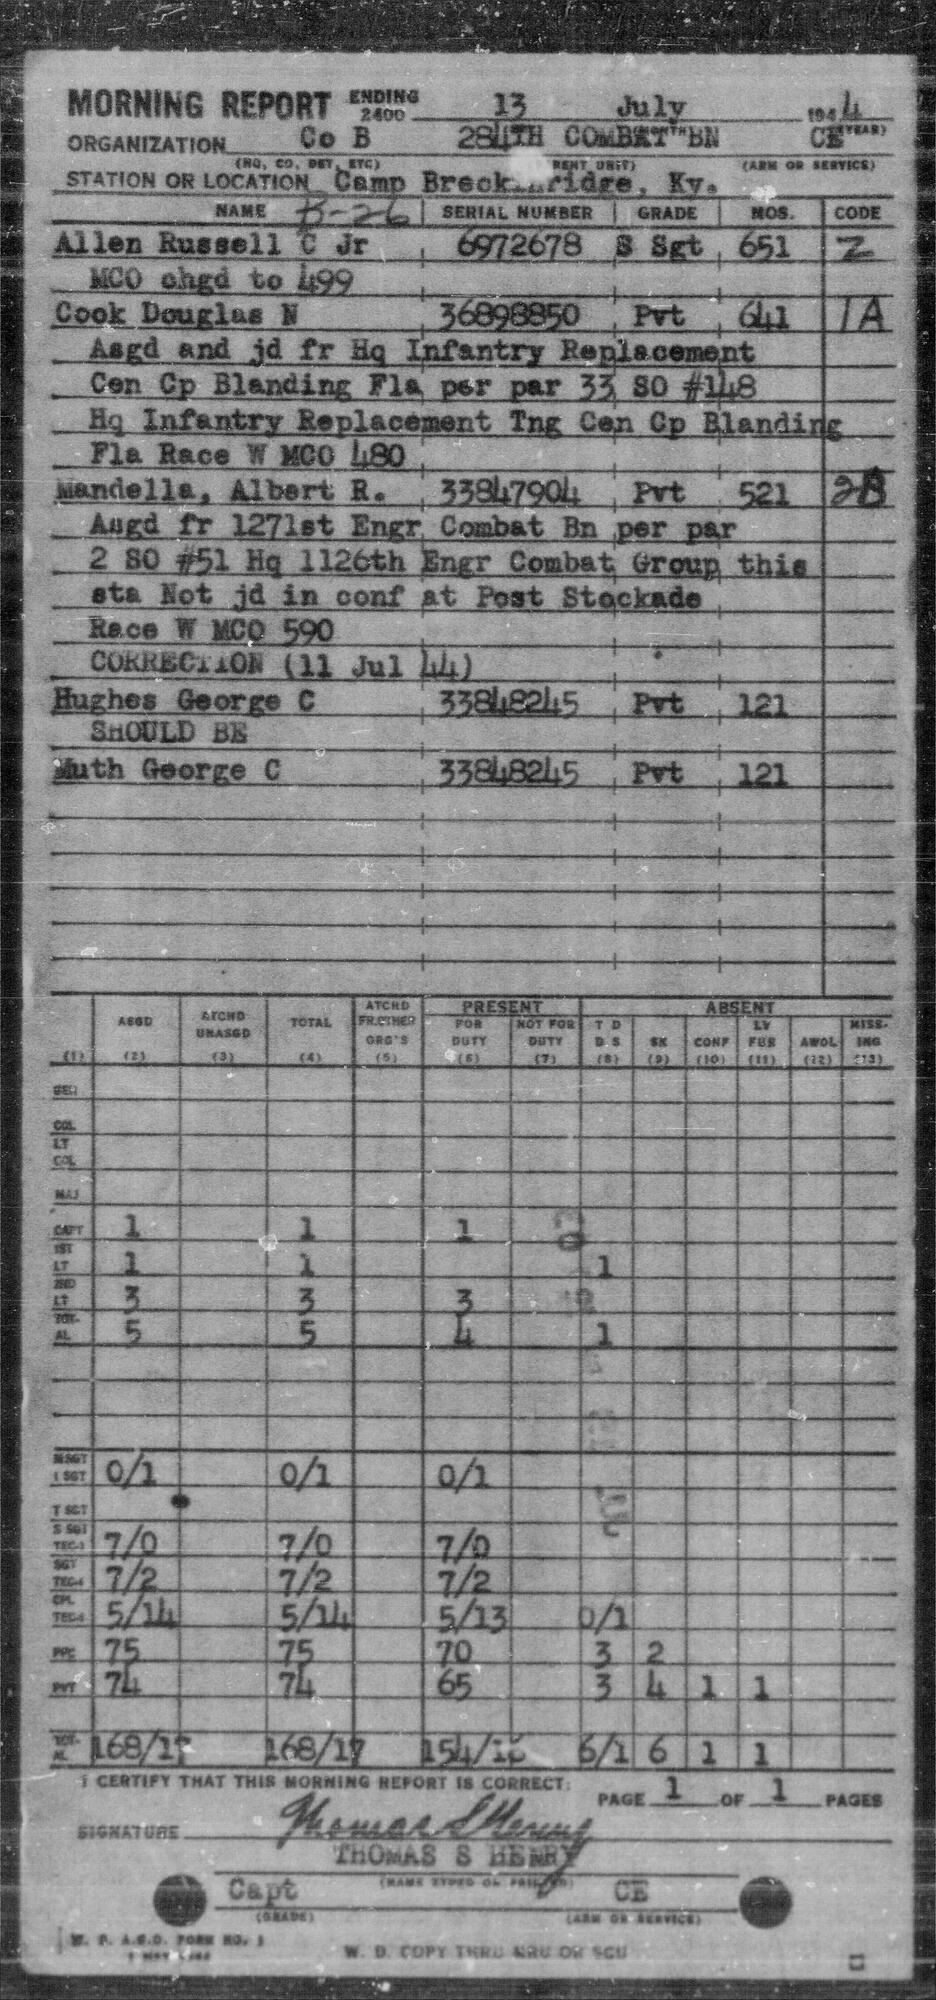 MORNING REPORT ENDING 2400 13 July 1944
ORGANIZATION Co B 284TH COMBAT BN CE
(HQ, CO, DET, ETC) (PARENT UNIT) (ARM OR SERVICE)
STATION OR LOCATION Camp Breckinridge, Ky.
NAME B-26 SERIAL NUMBER GRADE MOS. CODE
Allen Russell C Jr 6972678 S Sgt 651 Z
MCO chgd to 499
Cook Douglas N 36898850 Pvt 641 1A
Asgd and jd fr Hq Infantry Replacement
Cen Cp Blanding Fla per par 33 SO #148
Hq Infantry Replacement Tng Cen Cp Blanding
Fla Race W MCO 480
Mandella, Albert R. 33847904 Pvt 521 2B
Asgd fr 1271st Engr Combat Bn per par
2 SO #51 Hq 1126th Engr Combat Group this
sta Not jd in conf at Post Stockade
Race W MCO 590
CORRECTION (11 Jul 44)
Hughes George C 33848245 Pvt 121
SHOULD BE
Muth George C 33848245 Pvt 121
PRESENT ABSENT
ASGD ATCHD UNASGD TOTAL ATCHD FR.OTHER ORG'S FOR DUTY NOT FOR DUTY T D D S SK CONF LV FUR AWOL MISS-ING
(1) (2) (3) (4) (5) (6) (7) (8) (9) (10) (11) (12) (13)
GEN
COL
LT COL
MAJ
CAPT 1 1 1
1ST LT 1 1 1
2ND LT 3 3 3
TOT-AL 5 5 4 1
M SGT 1 SGT 0/1 0/1 0/1
T SGT
S SGT TEC-3 7/0 7/0 7/0
SGT TEC-4 7/2 7/2 7/2
CPL TEC-5 5/14 5/14 5/13 0/1
PFC 75 75 70 3 2
PVT 74 74 65 3 4 1 1
TOT-AL 168/17 168/17 154/16 6/1 6 1 1
I CERTIFY THAT THIS MORNING REPORT IS CORRECT:
PAGE 1 OF 1 PAGES
SIGNATURE Thomas S Henry
THOMAS S HENRY
(NAME TYPED OR PRINTED)
Capt CE
(GRADE) (ARM OR SERVICE)
W. D. A.G.O. FORM NO. 1
W. D. COPY THRU MRU OR SCU